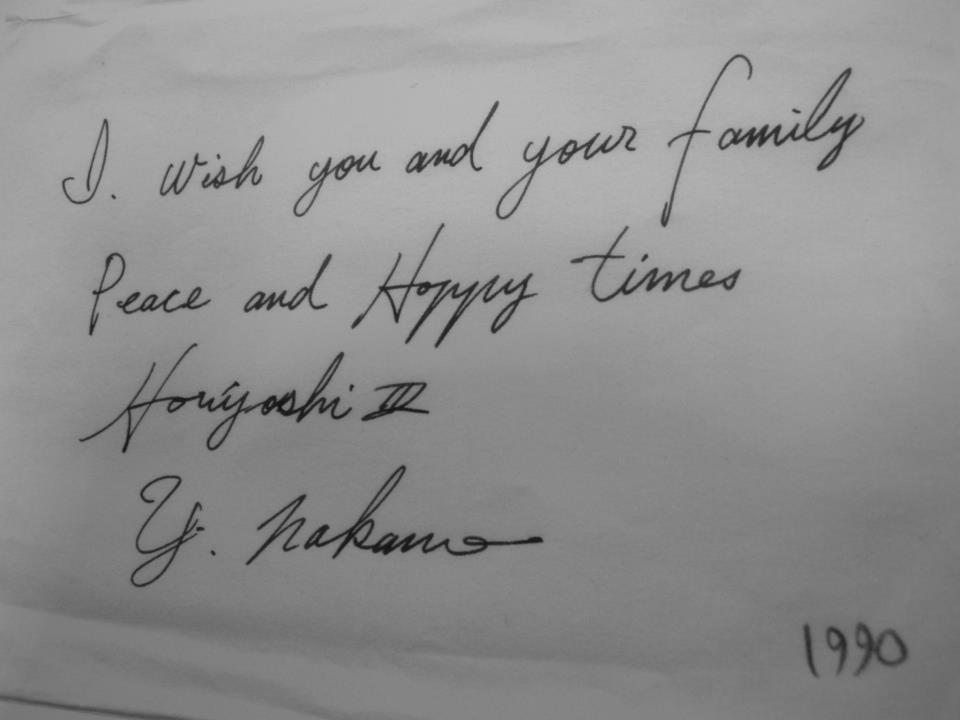 I. Wish you and your family
Peace and Happy times
Horiyoshi III
Y. Nakano
1990